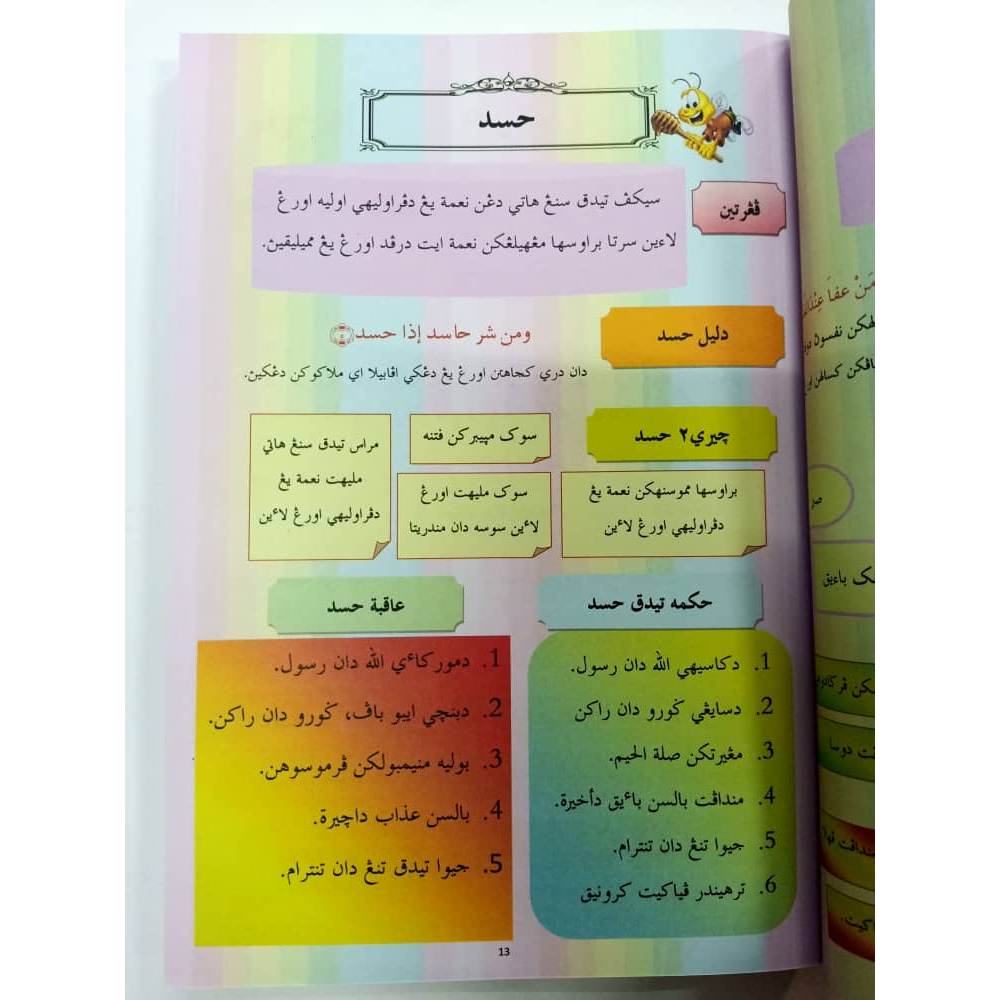 حسد
ڤڠرتين
سيكڤ تيدق سنڠ هاتي دڠن نعمة يڠ دڤراوليهي اوليه اورڠ
لاءين سرتا براوسها مڠهيلڠكن نعمة ايت درڤد اورڠ يڠ مميليقيڽ.
دليل حسد
ومن شر حاسد إذا حسد
دان دري كجاهتن اورڠ يڠ دڠكي اڤابيلا اي ملاكوكن دڠكيڽ.
چيري٢ حسد
براوسها مموسنهكن نعمة يڠ
دڤراوليهي اورڠ لاءين
سوک مڽيبركن فتنه
سوک مليهت اورڠ
لاءين سوسه دان مندريتا
مراس تيدق سنڠ هاتي
مليهت نعمة يڠ
دڤراوليهي اورڠ لاءين
حكمه تيدق حسد
1. دكاسيهي الله دان رسول.
2. دسايڠي ݢورو دان راكن
3. مڠيرتكن صلة الحيم.
4. منداڤت بالسن باءيق دأخيرة.
5. جيوا تنڠ دان تنترام.
6. ترهيندر ڤياكيت كرونيق
عاقبة حسد
1. دموركاءي الله دان رسول.
2. دبنچي ايبو باڤ، ݢورو دان راكن.
3. بوليه منيمبولكن ڤرموسوهن.
4. بالسن عذاب داچيرة.
5. جيوا تيدق تنڠ دان تنترام.
13